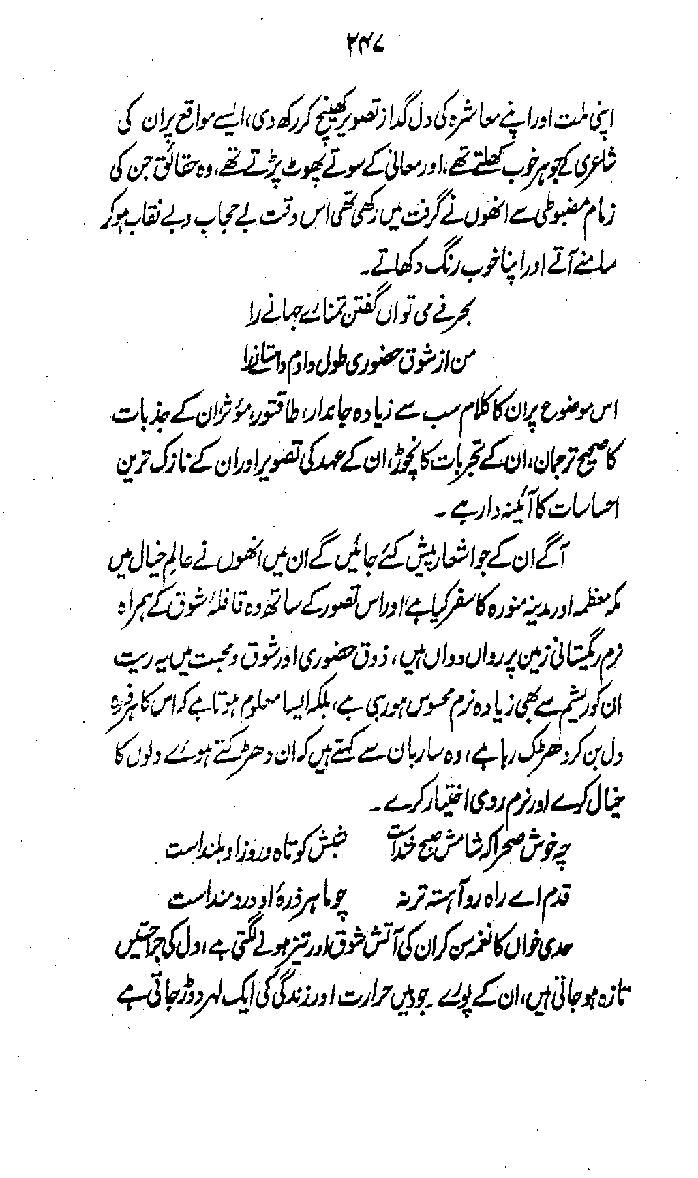 ۲۴۷
اپنی ملت اور اپنے معاشرہ کی دل گداز تصویر کھینچ کر رکھ دی، ایسے مواقع پر ان کی
شاعری کے جوہر خوب کھلتے تھے، اور معانی کے سوتے پھوٹ پڑتے تھے، وہ حقائق جن کی
زمام مضبوطی سے انھوں نے گرفت میں رکھی تھی اس وقت بے حجاب و بے نقاب ہو کر
سامنے آتے اور اپنا خوب رنگ دکھاتے۔
بحرفے می تواں گفتن تمنائے جہانے را
من از شوق حضوری طول دادم داستانے را
اس موضوع پر ان کا کلام سب سے زیادہ جاندار، طاقتور، مؤثر ان کے جذبات
کا صحیح ترجمان، ان کے تجربات کا نچوڑ، ان کے عہد کی تصویر اور ان کے نازک ترین
احساسات کا آئینہ دار ہے۔
آگے ان کے جو اشعار پیش کئے جائیں گے ان میں انھوں نے عالم خیال میں
مکہ معظمہ اور مدینہ منورہ کا سفر کیا ہے، اور اس تصور کے ساتھ وہ قافلۂ شوق کے ہمراہ
نرم ریگستانی زمین پر رواں دواں ہیں، ذوق حضوری اور شوق و محبت میں یہ ریت
ان کو ریشم سے بھی زیادہ نرم محسوس ہو رہی ہے، بلکہ ایسا معلوم ہوتا ہے کہ اس کا ہر ذرہ
دل بن کر دھڑک رہا ہے، وہ ساربان سے کہتے ہیں کہ ان دھڑکتے ہوئے دلوں کا
خیال کرے اور نرم روی اختیار کرے۔
چہ خوش صحرا کہ شامش صبح خنداست شبش کوتاہ و روز او بلند است
قدم اے راہ رو آہستہ تر نہ چو ما ہر ذرۂ او درد مند است
حدی خواں کا نغمہ سن کر ان کی آتش شوق اور تیز ہونے لگتی ہے، دل کی جراحتیں
تازہ ہو جاتی ہیں، ان کے پورے وجود میں حرارت اور زندگی کی ایک لہر دوڑ جاتی ہے